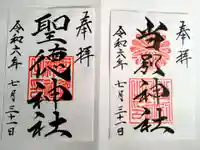 奉拝
聖徳神社
令和六年
七月三十一日
奉拝
神社
令和六年
七月三十一日